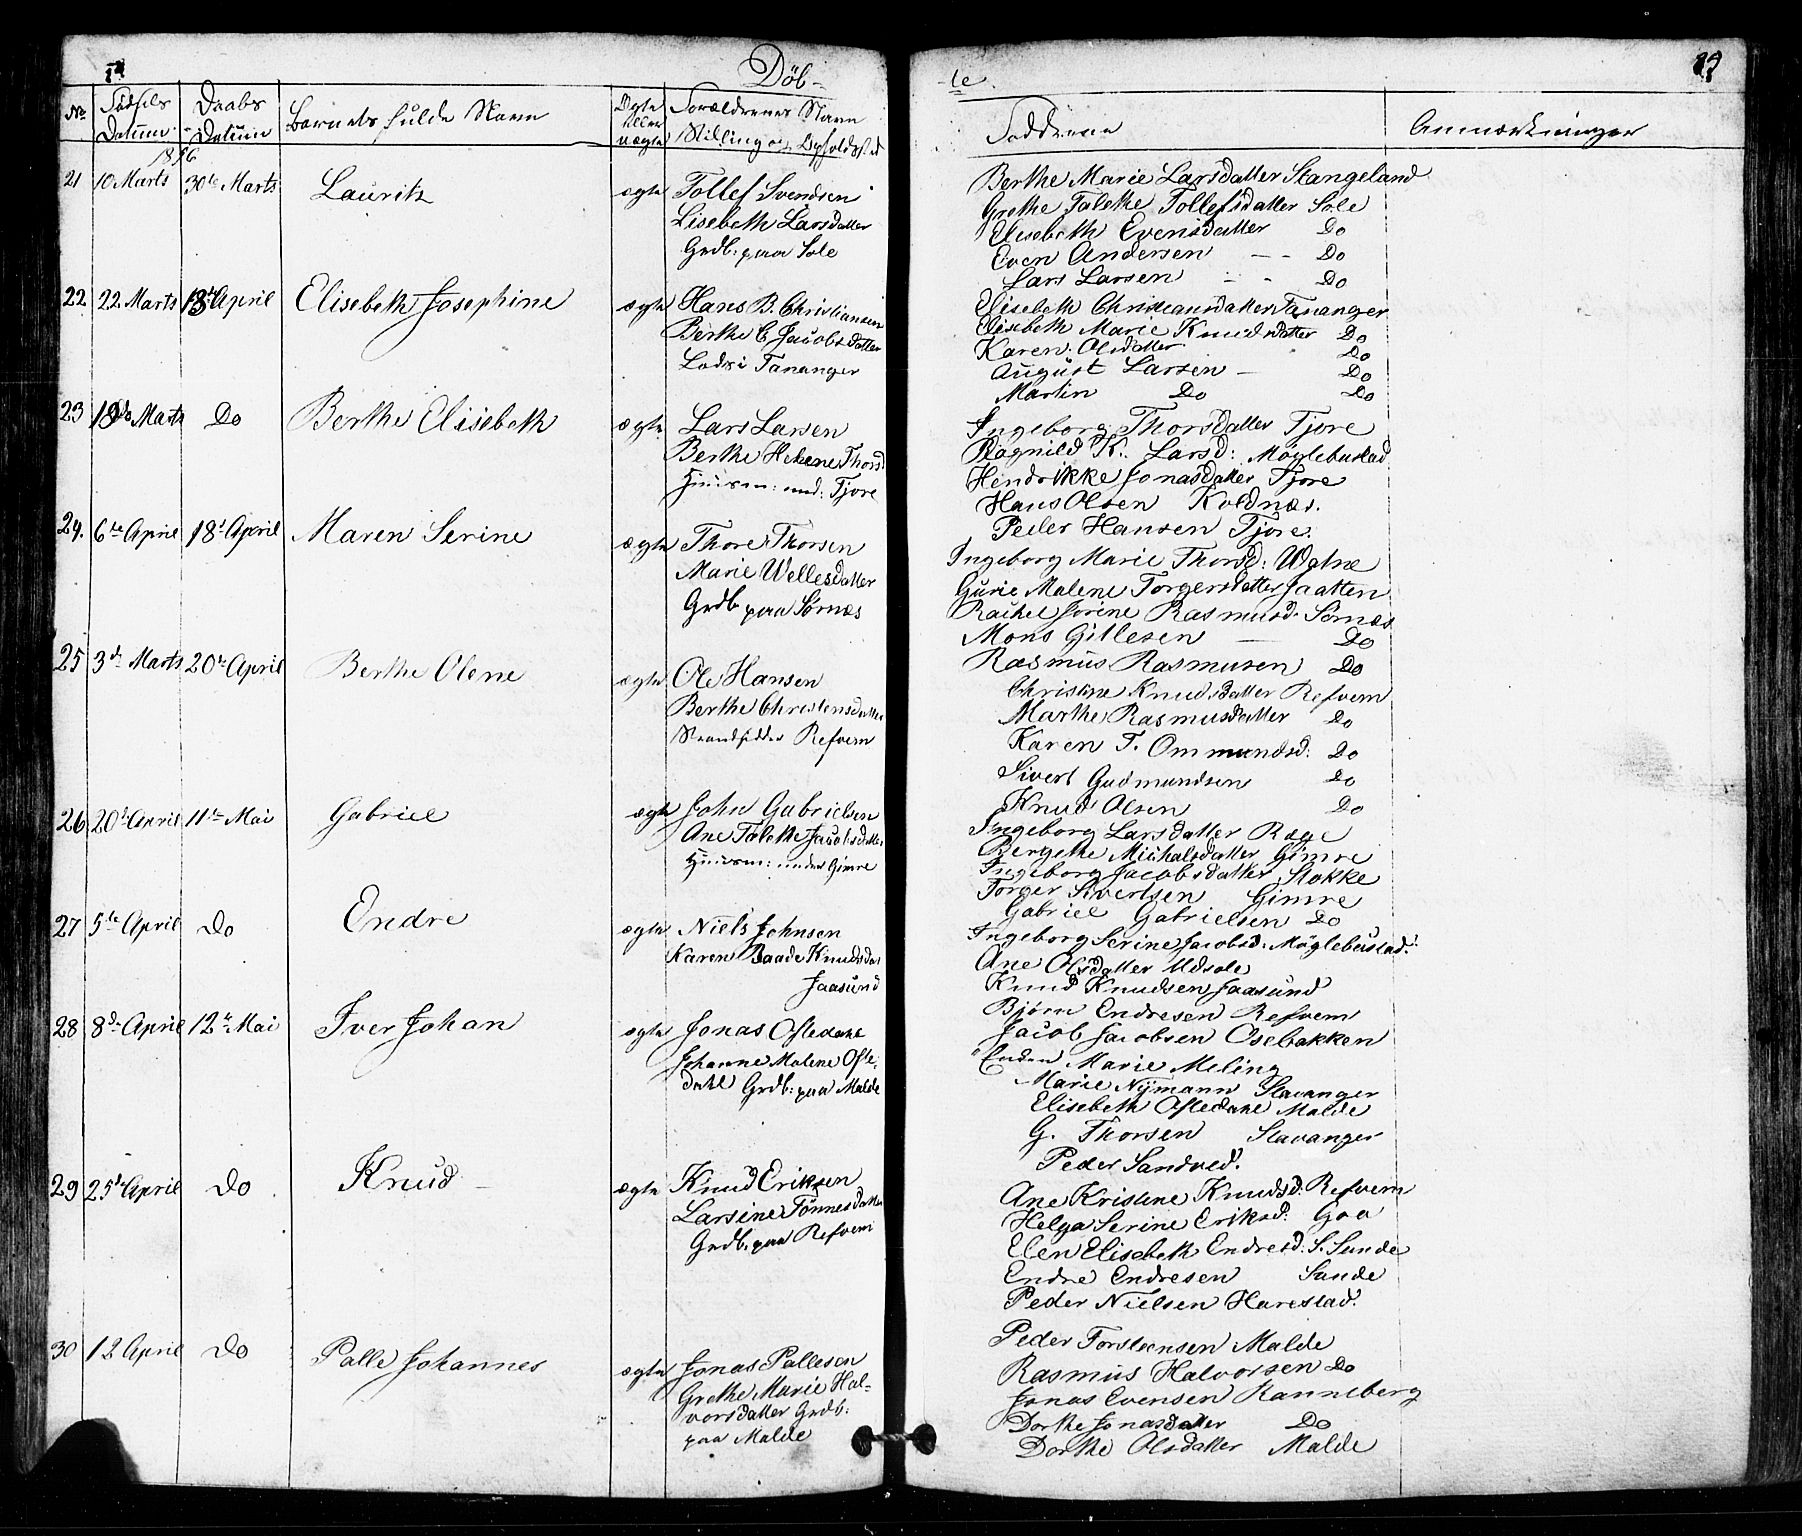 Døb-
No
Fødsels
Datum
Daabs
Datum
Barnets fulde Navn
Ægte
eller
uægte
Forældrenes Navn
Stilling og Opholdsst
21 10 Marts 30te Marts Lauritz ægte Tollef Svendsen
Lisebeth Larsdatter
Grdb: paa Sole
22 22 Marts 18d April Elisebeth Josephine ægte Hans B. Christiansen
Berthe C Jacobsdatter
Lods i Tananger
23 18de Marts Do Berthe Elisebeth ægte Lars Larsen
Berthe Helene Thorsd
Huusm: und: Tjore
24. 6te April 18d April Maren Serine ægte Thore Thorsen
Marie Wellesdatter
Grdb paa Sørnæs
25 3d Marts 20de April Berthe Olene ægte Ole Hansen
Berthe Christensdatter
Strandsidder Refvem
26 20de April 11te Mai Gabriel ægte John Gabrielsen
Ane Talethe Jacobsdatter
Huusm: under Gimre
27 5te April Do Endre ægte Niels Johnsen
Karen Baade Knudsdat
Jaasund
28 8de April 12te Mai Iver Johan ægte Jonas Oftedahl
Johanne Malene Ofte-
dahl Grdb: paa Malde
29 25de April Do Knud ægte Knud Eriksen
Larsine Tønnesdatter
Grdb. paa Refvem
30 12 April Do Palle Johannes ægte Jonas Pallesen
Grethe Marie Hal-
vorsdatter Grdb:
paa Malde
te.
Faddrene
Anmærkninger
Berthe Marie Larsdatter Stangeland
Grethe Talethe Tollefsdatter Sole
Elisebeth Evensdatter Do
Even Andersen - - Do
Lars Larsen - - Do
Elisebeth Christiansdatter Tananger
Elisebeth Marie Knudsdatter Do
Karen Olsdatter Do
August Larsen - Do
Martin Do Do
Ingeborg Thorsdatter Tjore
Ragnild K. Larsd: Møglebustad
Hendrikke Jonasdatter Tjore
Hans Olsen Koldnæs.
Peder Hansen Tjore.
Ingeborg Marie Thorsd: Watne
Gurie Malene Torgersdatter Jaatten
Rachel Jorine Rasmusd. Sørnæs
Mons Gillesen - Do
Rasmus Rasmusen Do
Christine Knudsdatter Refvem
Marthe Rasmusdatter Do
Karen T. Ommundsd: Do
Sivert Gudmundsen Do
Knud Olsen Do
Ingeborg Larsdatter Ræge
Bergethe Michalsdatter Gimre
Ingeborg Jacobsdatter Stokke
Torger Sivertsen Gimre
Gabriel Gabrielsen Do
Ingeborg Serine Jacobsd: Møglebustad.
Ane Olsdatter Udsole
Knud Knudsen Jaasund
Bjørn Endresen Refvem
Jacob Jacobsen Osebakken
Marie Meling
Marie Nymann Stavanger
Elisebeth Oftedahl Malde
G. Thorsen Stavanger
Peder Sandved.
Ane Kristine Knudsd: Refvem
Helga Serine Eriksd: Goa
Elen Elisebeth Endresd: S. Sunde
Endre Endresen Sunde
Peder Nielsen Harestad.
Peder Torstensen Malde
Rasmus Halvorsen Do
Jonas Evensen Ranneberg
Dorthe Jonasdatter Do
Dorthe Olsdatter Malde